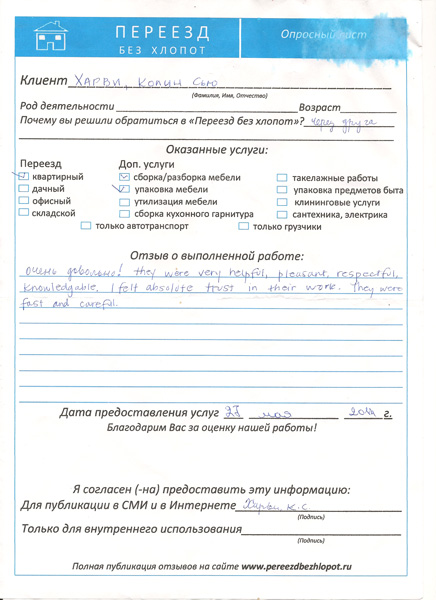 ПЕРЕЕЗД
БЕЗ ХЛОПОТ
Опросный лист
Клиент Харви, Колин Сью
(Фамилия, Имя, Отчество)
Род деятельности Возраст
Почему вы решили обратиться в «Переезд без хлопот»? через друга
Оказанные услуги:
Переезд Доп. услуги
квартирный сборка/разборка мебели такелажные работы
дачный упаковка мебели упаковка предметов быта
офисный утилизация мебели клининговые услуги
складской сборка кухонного гарнитура сантехника, электрика
только автотранспорт только грузчики
Отзыв о выполненной работе:
Очень довольно! they were very helpful, pleasant, respectful,
knowledgable, I felt absolute trust in their work. They were
fast and careful.
Дата предоставления услуг 27 мая г.
Благодарим Вас за оценку нашей работы!
Я согласен (-на) предоставить эту информацию:
Для публикации в СМИ и в Интернете Харви К.С
(Подпись)
Только для внутреннего использования
(Подпись)
Полная публикация отзывов на сайте www.pereezdbezhlopot.ru